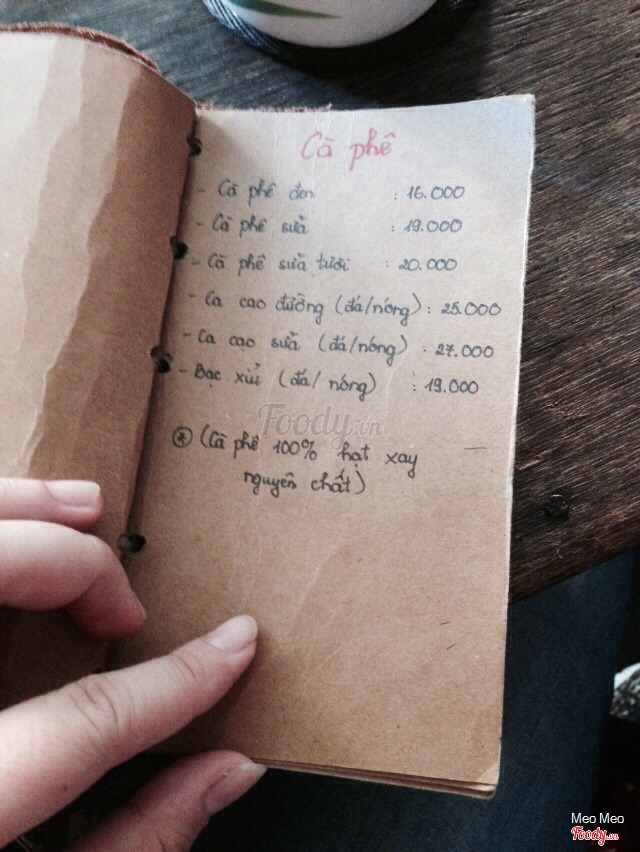 Cà phê
- Cà phê đen : 16.000
- Cà phê sữa : 19.000
- Cà phê sữa tươi : 20.000
- Ca cao đường (đá/nóng) : 25.000
- Ca cao sữa (đá/nóng) : 27.000
- Bạc xỉu (đá/ nóng) : 19.000
Foody.vn
* (Cà phê 100% hạt xay
nguyên chất)
Meo Meo
Foody.vn